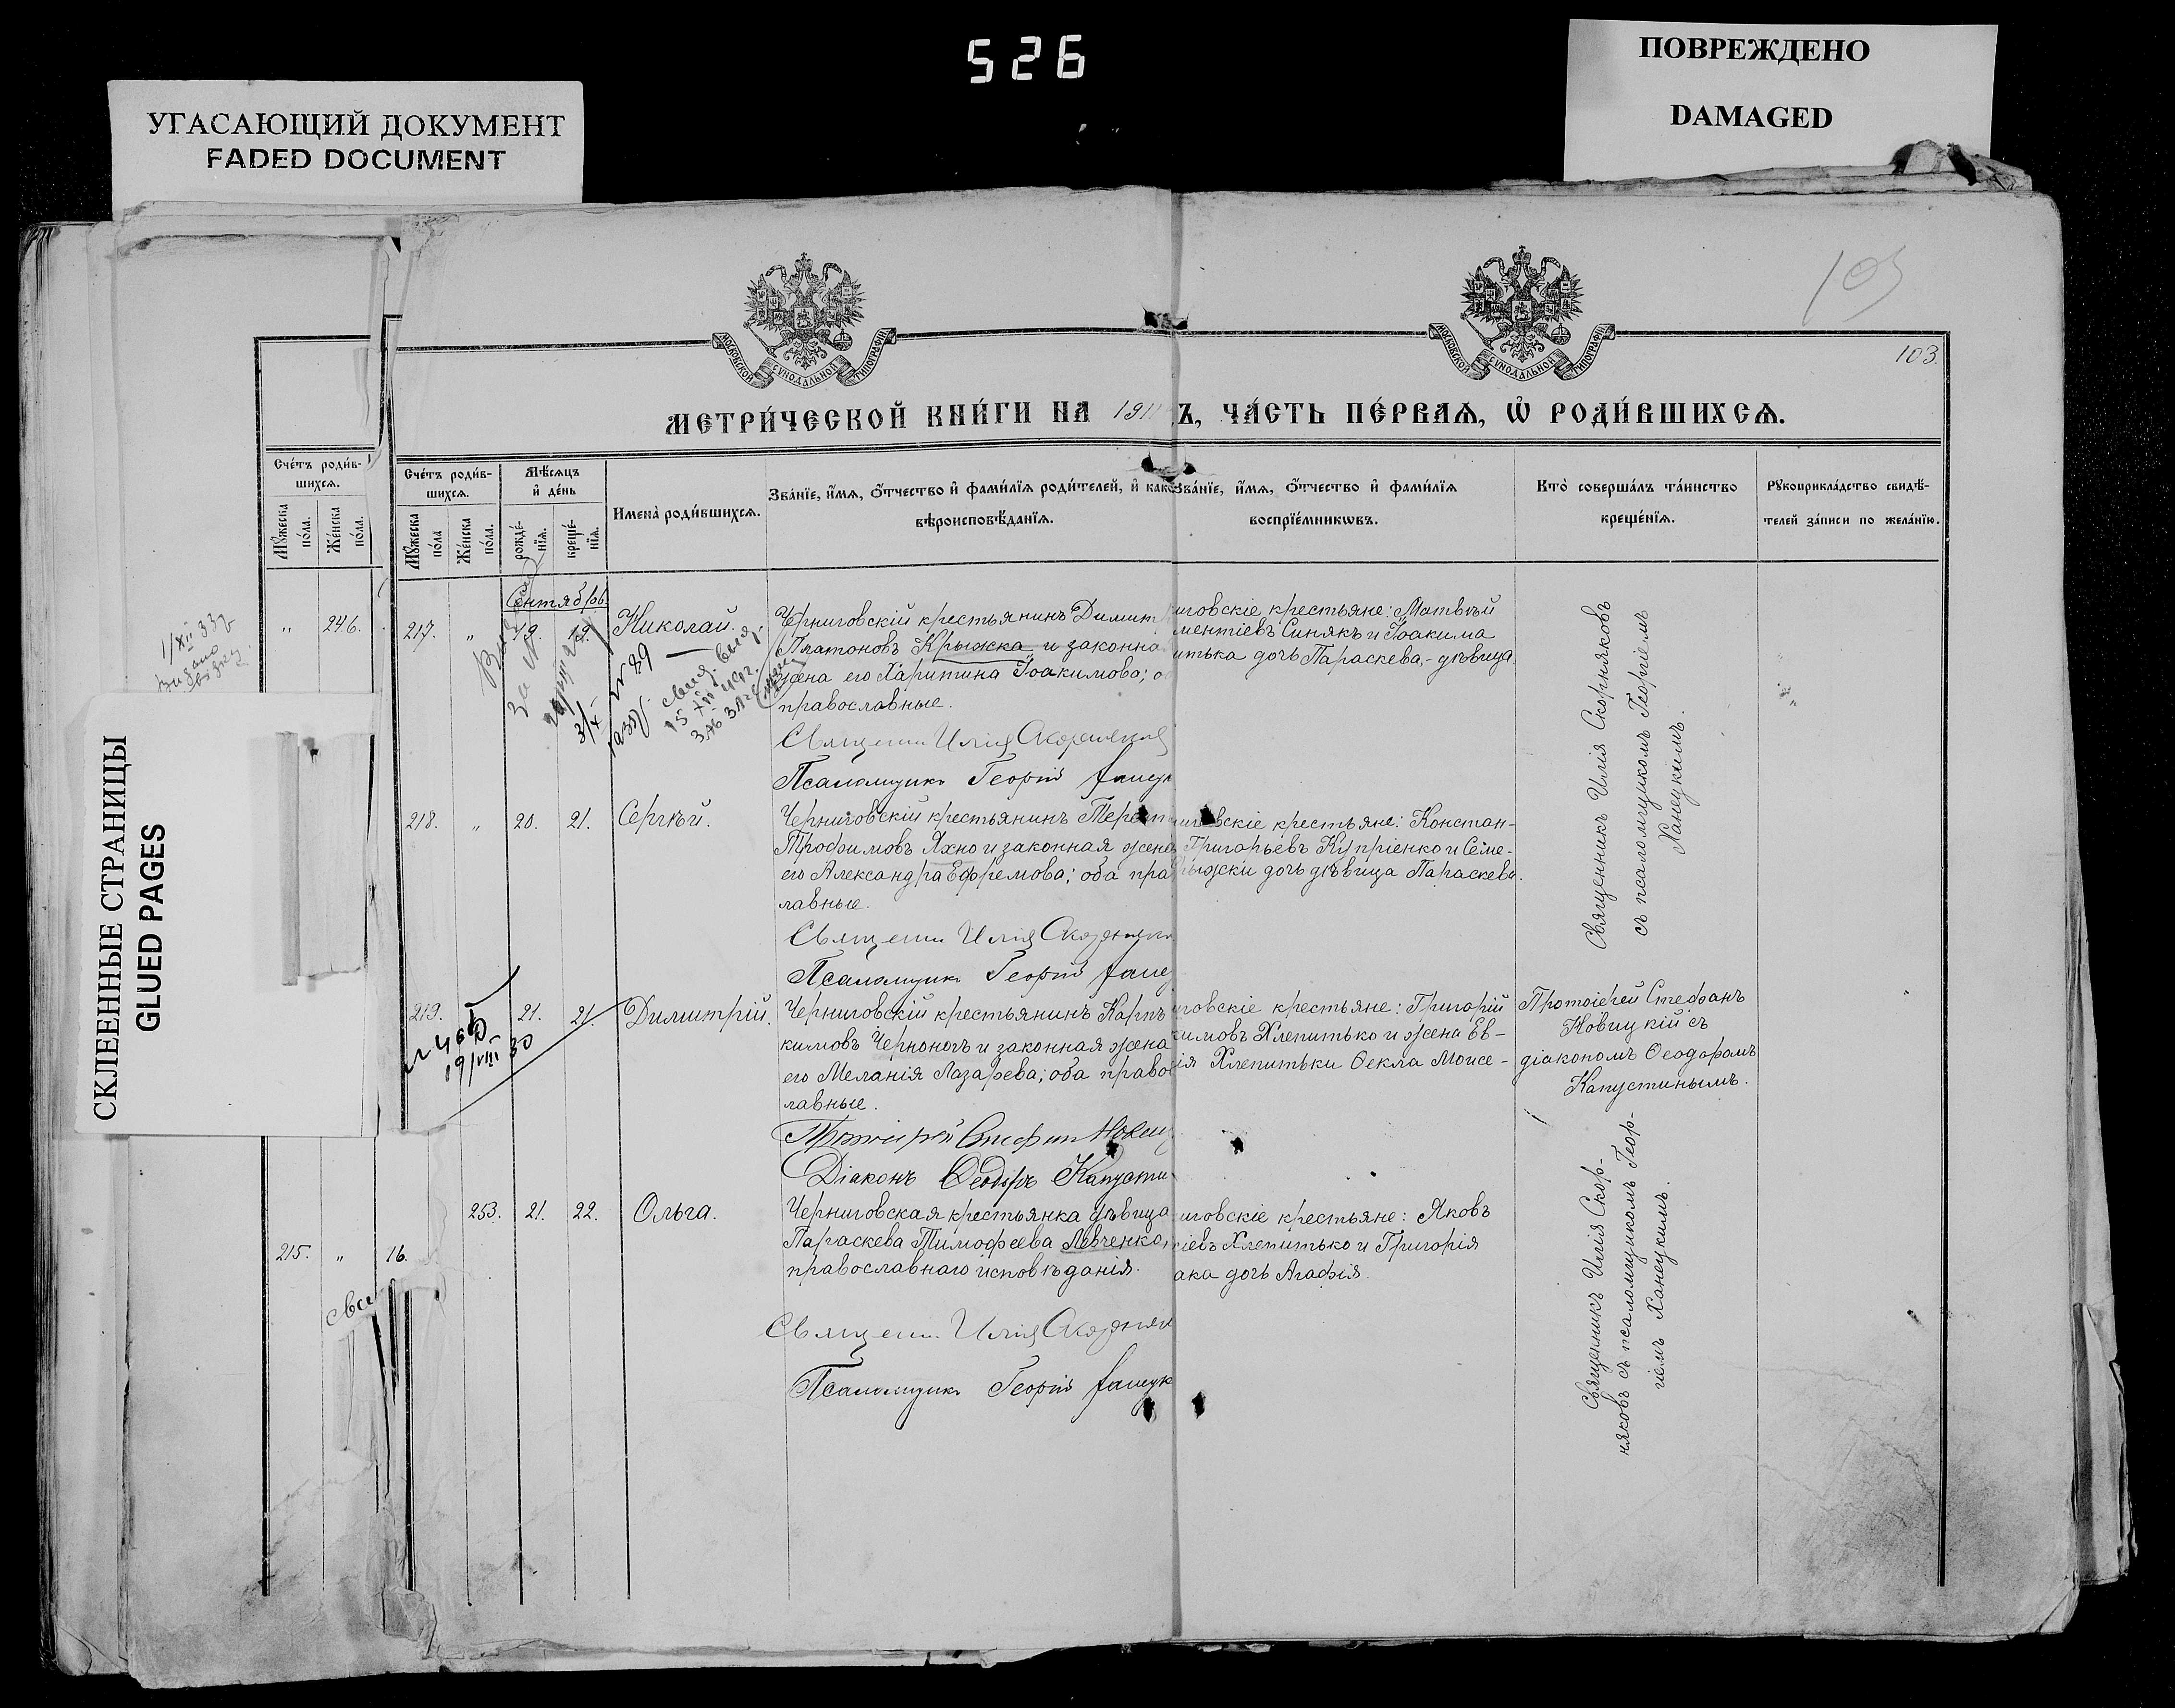 526
ПОВРЕЖДЕНО
DAMAGED
УГАСАЮЩИЙ ДОКУМЕНТ
FADED DOCUMENT
СКЛЕЕННЫЕ СТРАНИЦЫ
GLUED PAGES
103
МОСКОВСКОЙ СѴНОДАЛЬНОЙ ТИПОГРАФІИ
МОСКОВСКОЙ СѴНОДАЛЬНОЙ ТИПОГРАФІИ
МЕТРИ́ЧЕСКОЙ КНИ́ГИ НА 191 Ъ, ЧА́СТЬ ПЕ́РВАѦ, Ѡ҆ РОДИ́ВШИХСѦ.
Сче́тъ роди́в-
шихсѧ.
Мꙋ́жеска по́ла.
Же́нска по́ла.
Сче́тъ роди́в-
шихсѧ.
Мꙋ́жеска по́ла
Же́нска по́ла.
Мѣ́сѧцъ
и҆ де́нь
рожде́-
нїѧ.
креще́-
нїѧ.
И҆мена̀ роди́вшихсѧ.
Зва́нїе, и҆́мѧ, ѻ҆́тчество и҆ фами́лїѧ роди́телей, и҆ како
вѣроисповѣ́данїѧ.
Зва́нїе, и҆́мѧ, ѻ҆́тчество и҆ фами́лїѧ
воспрїе́мникѡвъ.
Кто̀ соверша́лъ та́инство
креще́нїѧ.
Рꙋкоприкла́дство свидѣ́-
телей за́писи по жела́нїю.
1/XII 33 г
видано
" 246.
Сентябрь
217. " 19. 19. Николай.
Черниговскій крестьянинъ Димит
Платоновъ Крыжка и законна
жена его Харитина Іоакимова; о
православные.
Священн Илія Скорняков
Псаломщикъ Георгій Ханец
иговскіе крестьяне: Матвѣй
ментіевъ Синякъ и Іоакима
итька дочь Параскева,- дѣвица.
Священникъ Илія Скорняковъ
съ псаломщикомъ Георгіемъ
Ханецкимъ.
N 89
3/X
15 XII
218. " 20. 21. Сергѣй.
Черниговскій крестьянинъ Терен
Трофимовъ Яхно и законная жена
его Александра Ефремова; оба пра
лавные.
Священн Илія Скорняко
Псаломщикъ Георгій Ханец
иговскіе крестьяне: Констан-
Григорьевъ Купріенко и Семе-
рыжки дочь дѣвица Параскева.
219. 21. 21. Димитрій.
19/VIII 30
Черниговскій крестьянинъ Карпъ
кимовъ Черноногъ и законная жена
его Меланія Лазарева; оба правос
лавные.
Протоіерей Стефан Новиц
Діаконъ Ѳеодоръ Капусти
говскіе крестьяне: Григорій
кимовъ Хлепитько и жена Ев-
ія Хлепитьки Ѳекла Моисе-
Протоіерей Стефанъ
Новицкій съ
діакономъ Ѳеодоромъ
Капустинымъ.
253. 21. 22. Ольга.
Черниговская крестьянка дѣвица
Параскева Тимофеева Левченко,
православнаго исповѣданія.
Священн Илія Скорняк
Псаломщикъ Георгій Ханецк
иговскіе крестьяне: Яковъ
сіевъ Хлепитько и Григорія
ака дочь Агафія.
Священникъ Илія Скор-
няковъ съ псаломщикомъ Геор-
гіемъ Ханецкимъ.
215. " 16.